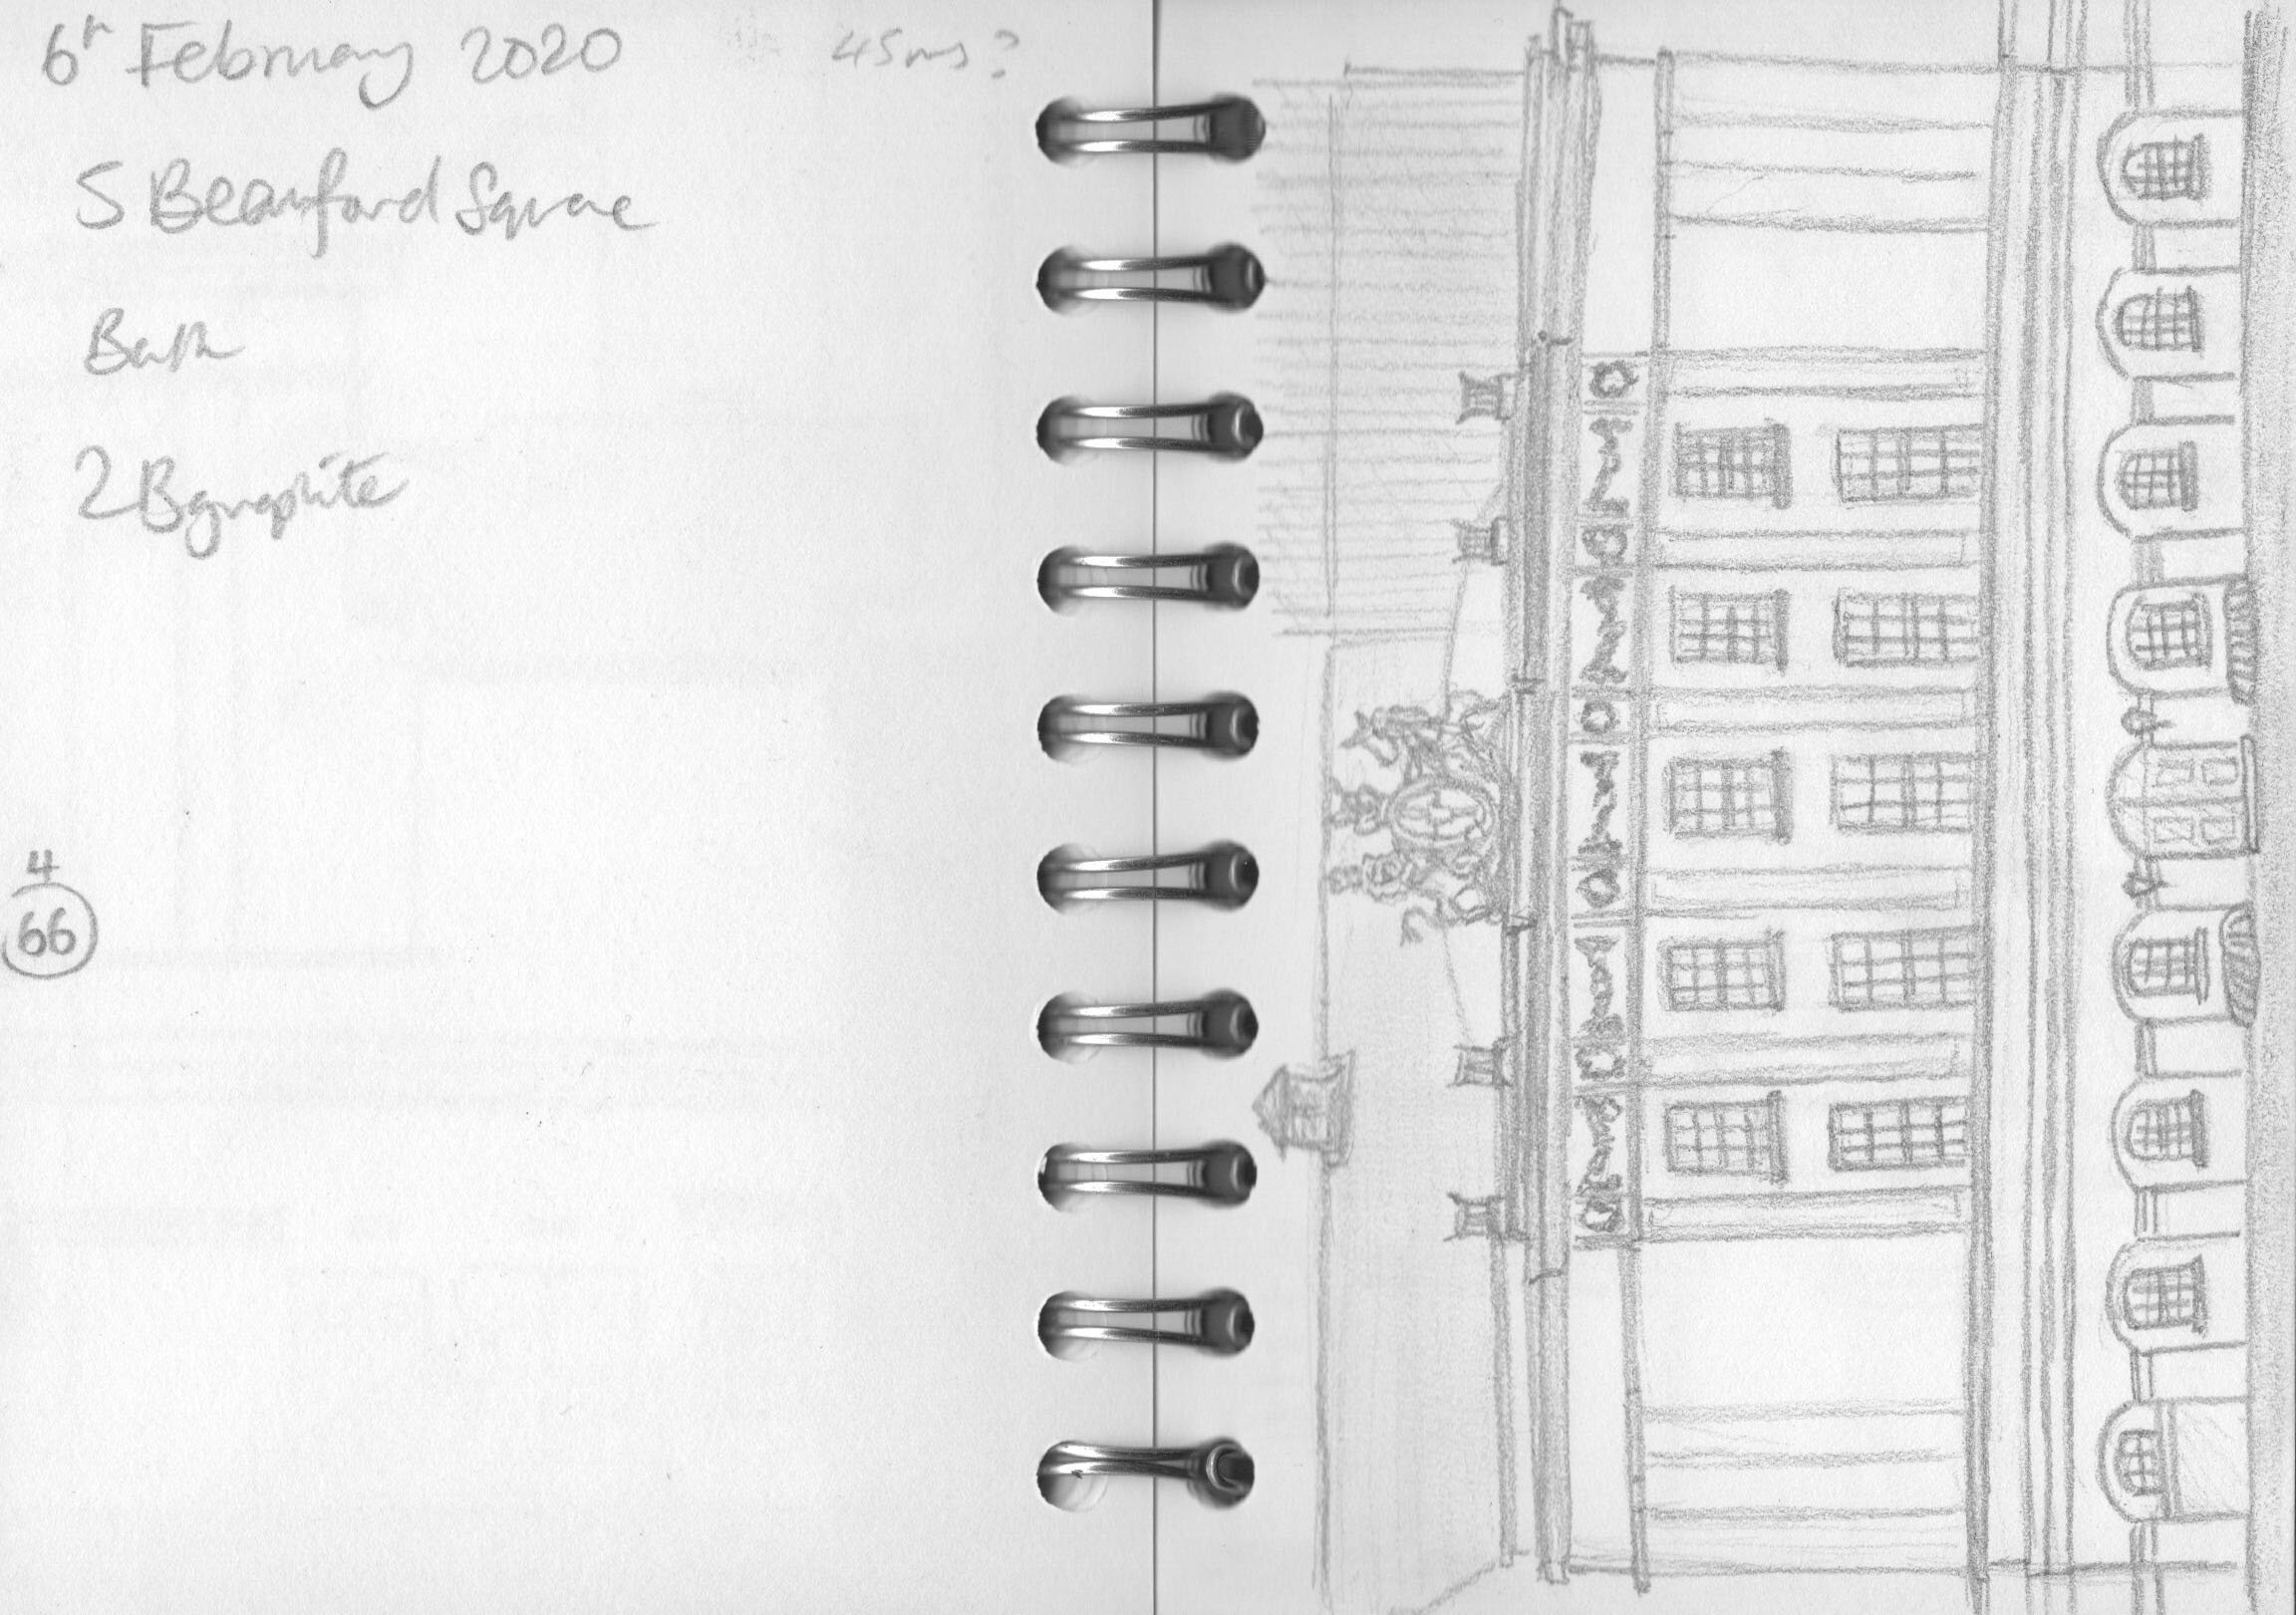 6th February 2020 45ms?
5 Beauford Square
Bath
2B graphite
4
66